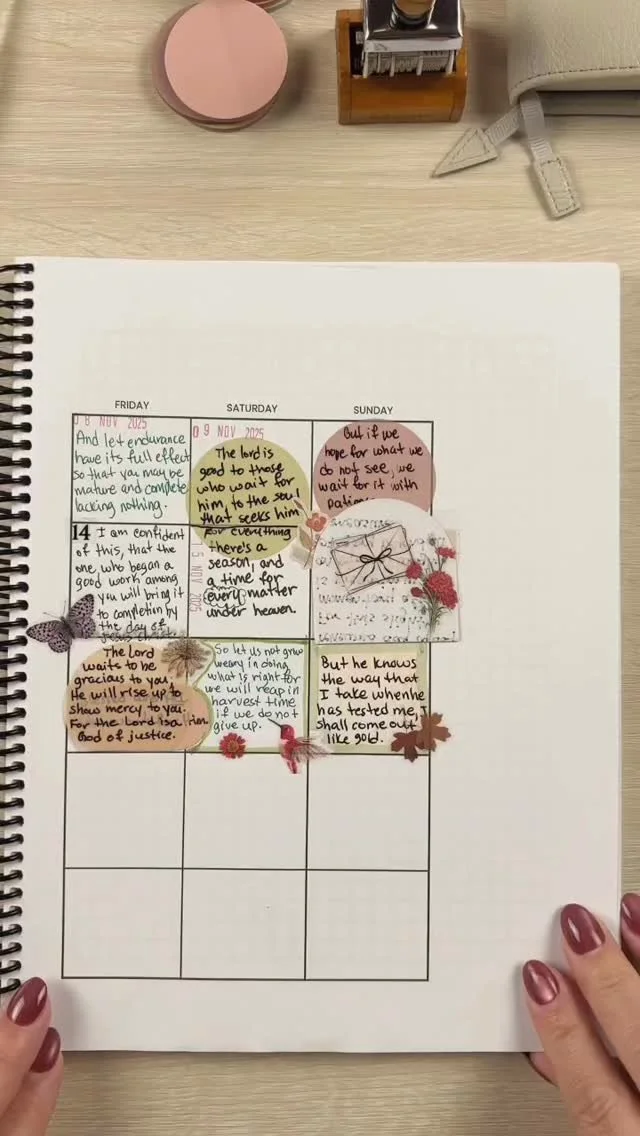 FRIDAY
SATURDAY
SUNDAY
8 NOV 2025
And let endurance
have its full effect
so that you may be
mature and complete
lacking nothing.
09 NOV 2025
The lord is
good to those
who wait for
him, to the soul
that seeks him
But if we
hope for what we
do not see, we
wait for it with
14 I am confident
of this, that the
one, who began a
good work among
you will bring it
to completion by
the day of
15 NOV 2025
For everything
there's a
season, and
a time for
every matter
under heaven.
The Lord
waits to be
gracious to you,
He will rise up to
show mercy to you.
For the Lord is a
God of justice.
him.
So let us not grow
weary in doing
what is right for
we will reap in
harvest time
if we do not
give up.
But he knows
the way that
I take when he
has tested me, I
shall come out
like gold.